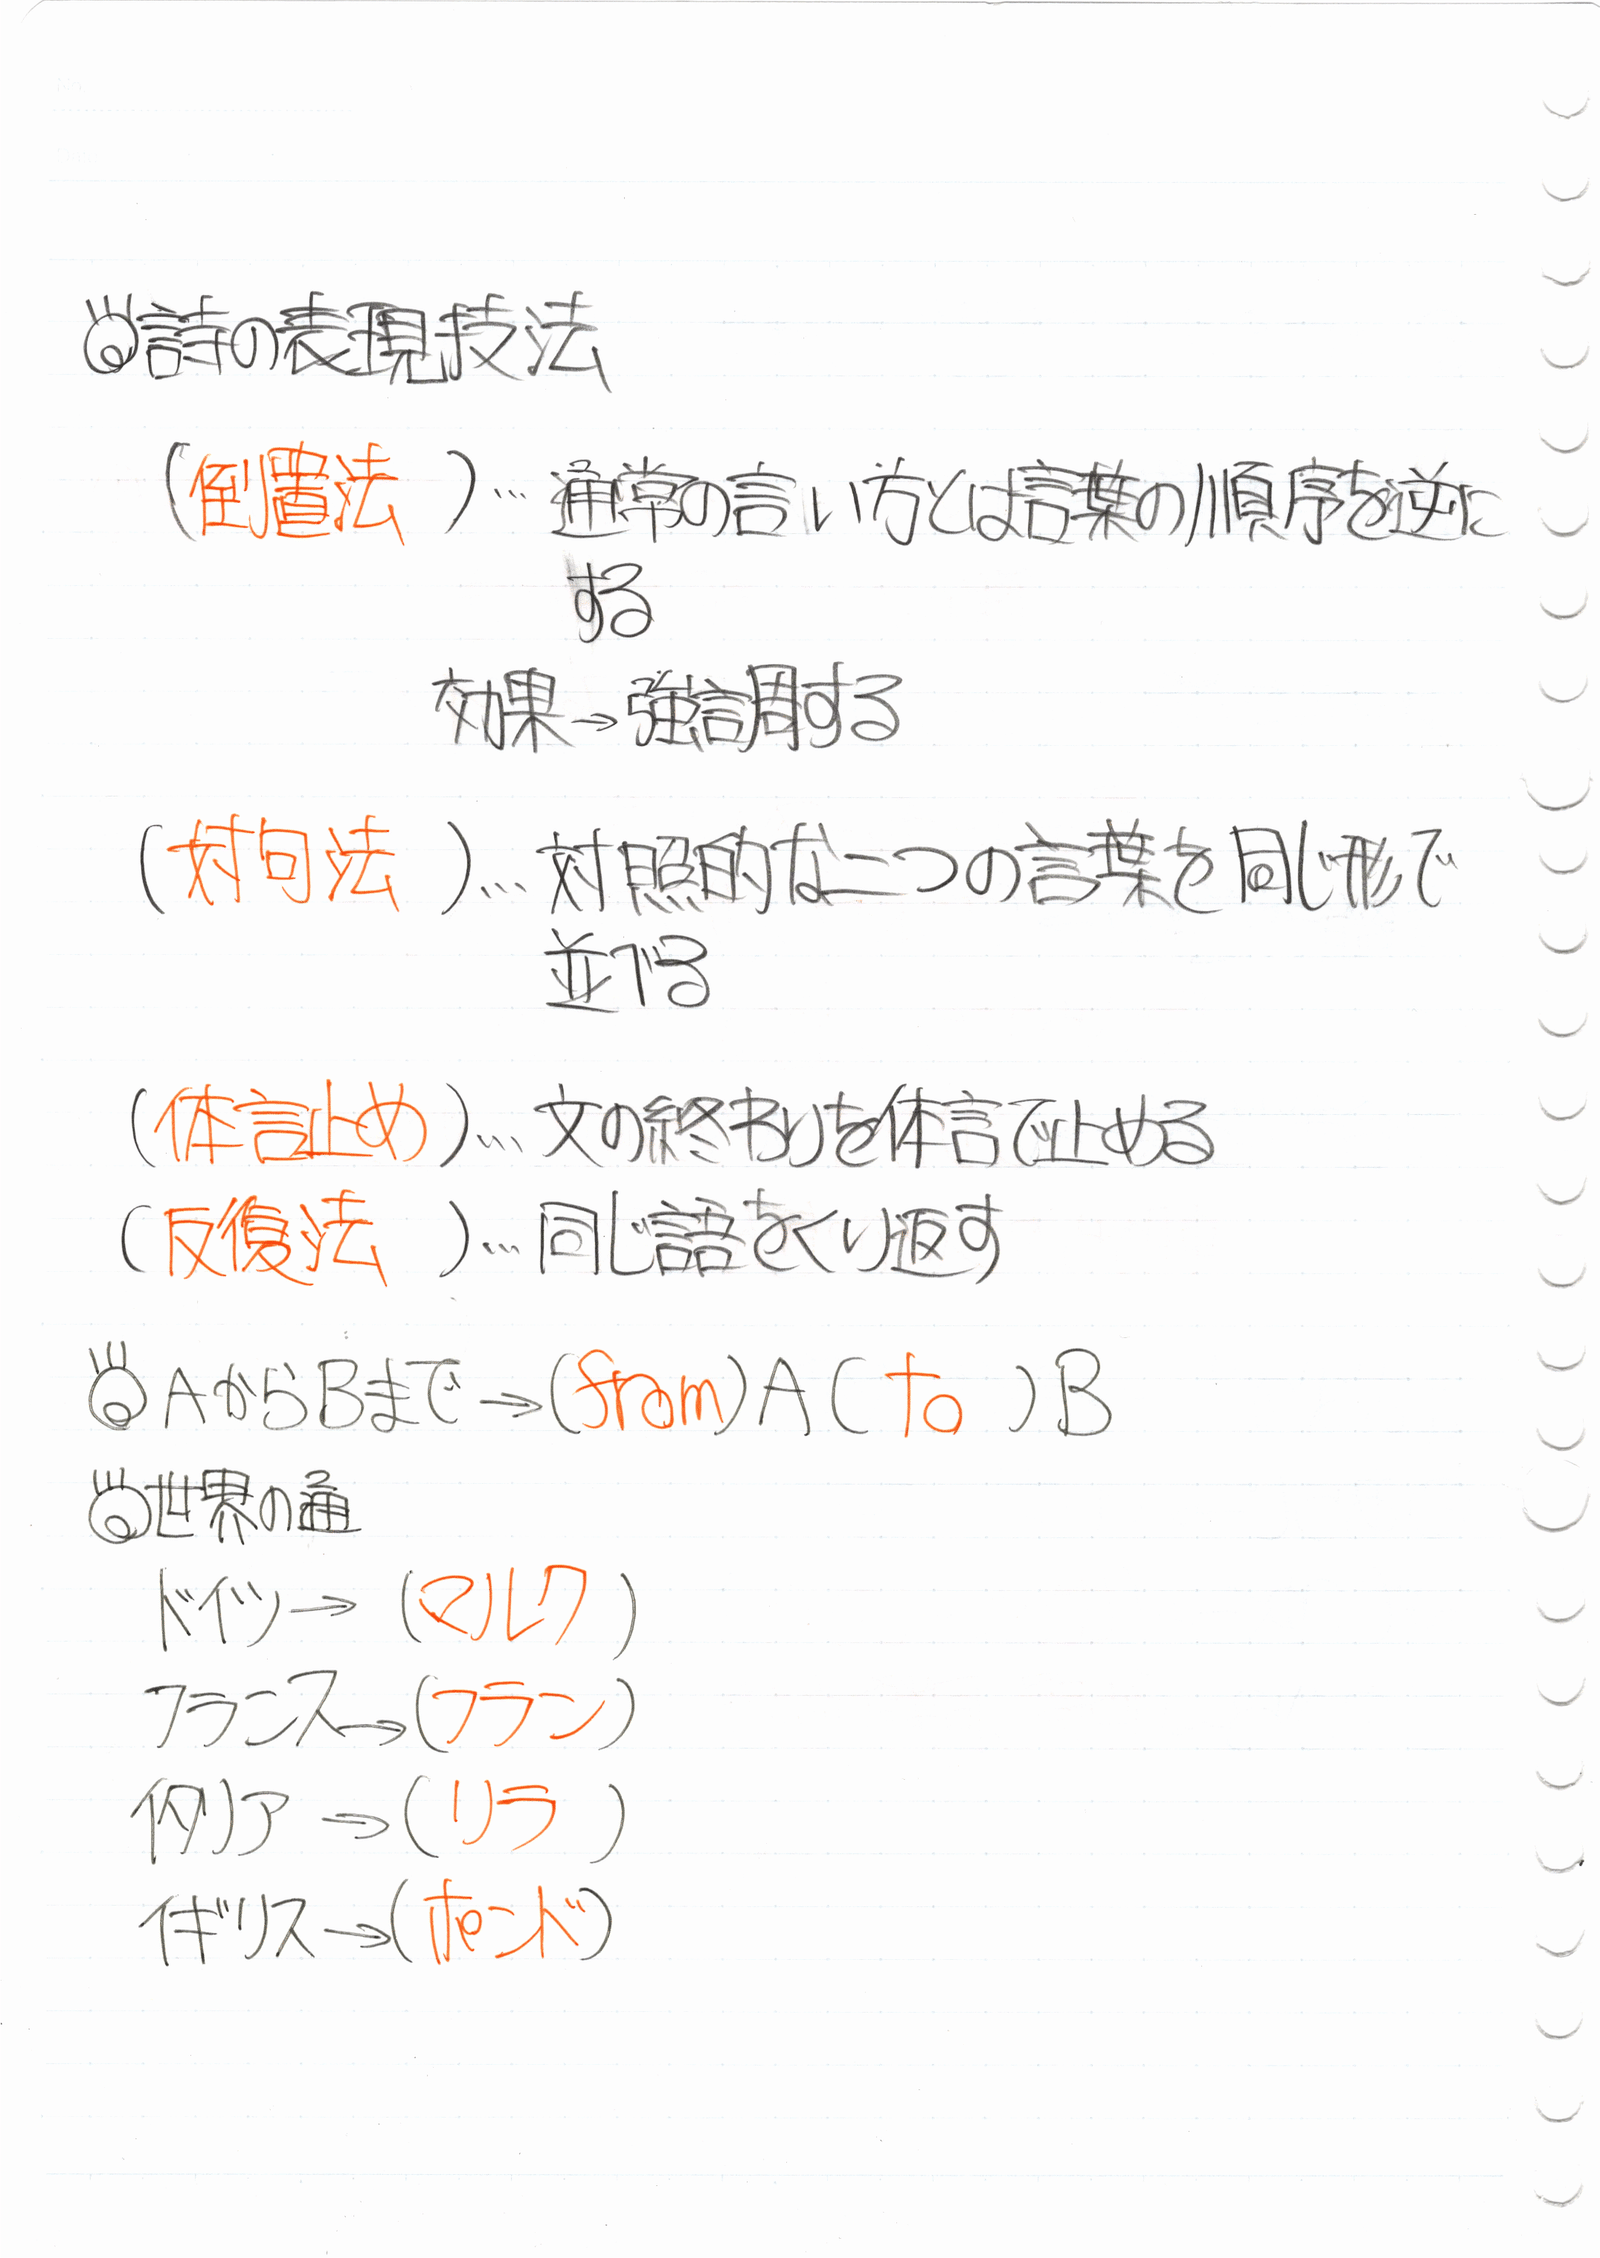 詩の表現技法
(倒置法)… 通常の言い方とは言葉の順序を逆に
する
効果→強調する
(対句法)… 対照的な二つの言葉を同じ形で
並べる
(体言止め)… 文の終わりを体言で止める
(反復法)… 同じ語をくり返す
AからBまで→(from)A(to)B
世界の通
ドイツ→(マルク)
フランス→(フラン)
イタリア→(リラ)
イギリス→(ポンド)